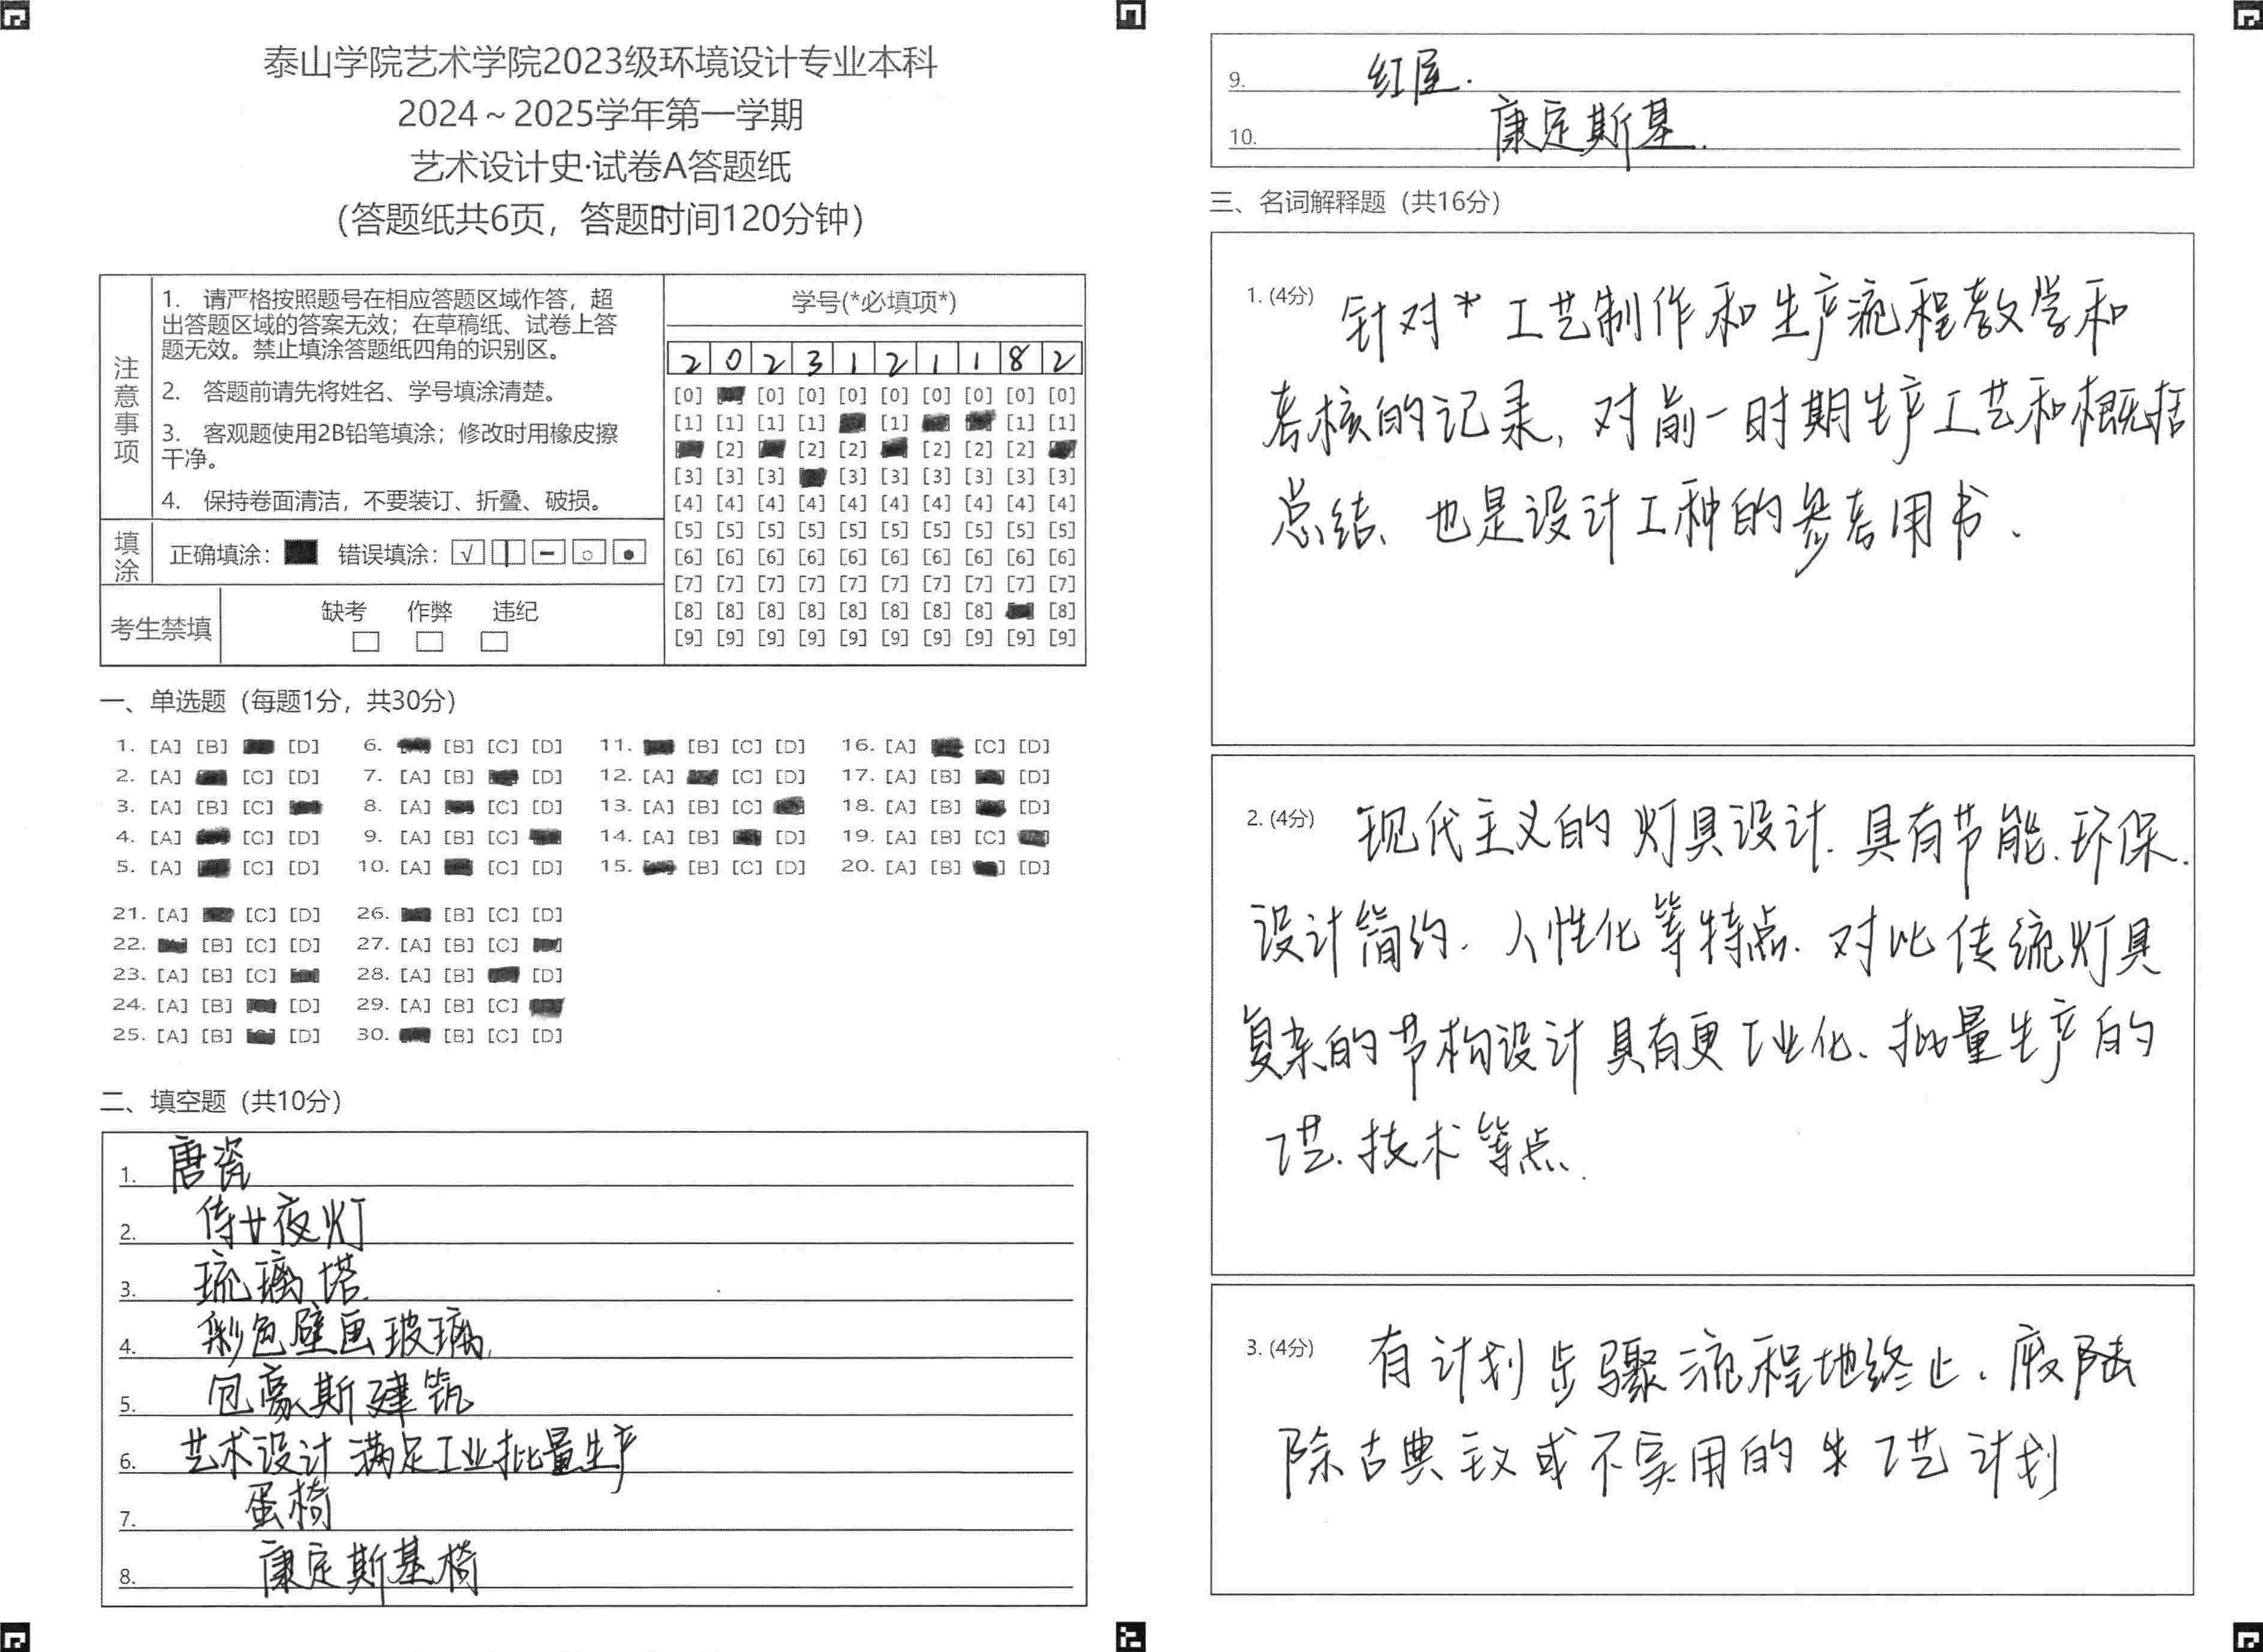 泰山学院艺术学院2023级环境设计专业本科
2024～2025学年第一学期
艺术设计史·试卷A答题纸
（答题纸共6页，答题时间120分钟）
注意事项
1. 请严格按照题号在相应答题区域作答，超
出答题区域的答案无效；在草稿纸、试卷上答
题无效。禁止填涂答题纸四角的识别区。
2. 答题前请先将姓名、学号填涂清楚。
3. 客观题使用2B铅笔填涂；修改时用橡皮擦
干净。
4. 保持卷面清洁，不要装订、折叠、破损。
填涂
正确填涂： 错误填涂：
考生禁填
缺考 作弊 违纪
学号(*必填项*)
2 0 2 3 1 2 1 1 8 2
[0] [0] [0] [0] [0] [0] [0] [0] [0]
[1] [1] [1] [1] [1] [1] [1]
[2] [2] [2] [2] [2] [2]
[3] [3] [3] [3] [3] [3] [3] [3] [3]
[4] [4] [4] [4] [4] [4] [4] [4] [4] [4]
[5] [5] [5] [5] [5] [5] [5] [5] [5] [5]
[6] [6] [6] [6] [6] [6] [6] [6] [6] [6]
[7] [7] [7] [7] [7] [7] [7] [7] [7] [7]
[8] [8] [8] [8] [8] [8] [8] [8] [8]
[9] [9] [9] [9] [9] [9] [9] [9] [9] [9]
一、单选题（每题1分，共30分）
1. [A] [B] [D] 6. [B] [C] [D] 11. [B] [C] [D] 16. [A] [C] [D]
2. [A] [C] [D] 7. [A] [B] [D] 12. [A] [C] [D] 17. [A] [B] [D]
3. [A] [B] [C] 8. [A] [C] [D] 13. [A] [B] [C] 18. [A] [B] [D]
4. [A] [C] [D] 9. [A] [B] [C] 14. [A] [B] [D] 19. [A] [B] [C]
5. [A] [C] [D] 10. [A] [C] [D] 15. [B] [C] [D] 20. [A] [B] [D]
21. [A] [C] [D] 26. [B] [C] [D]
22. [B] [C] [D] 27. [A] [B] [C]
23. [A] [B] [C] 28. [A] [B] [D]
24. [A] [B] [D] 29. [A] [B] [C]
25. [A] [B] [D] 30. [B] [C] [D]
二、填空题（共10分）
1. 唐瓷
2. 侍女夜灯
3. 琉璃塔.
4. 彩色壁画玻璃.
5. 包豪斯建筑
6. 艺术设计满足工业批量生产
7. 蛋椅
8. 康定斯基椅
9. 红屋.
10. 康定斯基.
三、名词解释题（共16分）
1. (4分) 针对*工艺制作和生产流程教学和
考核的记录, 对前一时期生产工艺和概括
总结、也是设计工种的参考用书.
2. (4分) 现代主义的灯具设计. 具有节能.环保.
设计简约. 人性化等特点. 对比传统灯具
复杂的节构设计具有更工业化、批量生产的
工艺.技术等点.
3. (4分) 有计划步骤流程地终止. 废除
除古典主义或不实用的 工艺计划